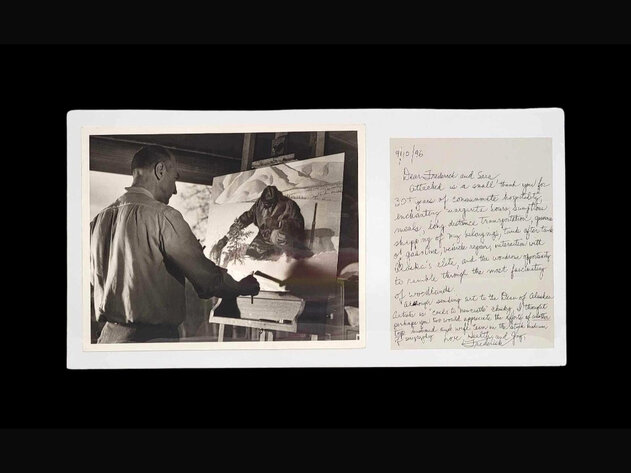 9/10/96
Dear Frederick and Sara
Attached is a small thank you for
30+ years of consummate hospitality,
enchanting sumptuous
meals, long distance transportation,
shipping of my belongings, tank after tank
of gasoline, vehicle repair, interaction with
Alaska's elite, and the wondrous opportunity
to ramble through the most fascinating
of woodlands.
Although sending art to the Dean of Alaska
Artists is "coals to Newcastle" I thought
perhaps you too would appreciate the efforts of another
husband and wife team in the
of Love and
Frederick